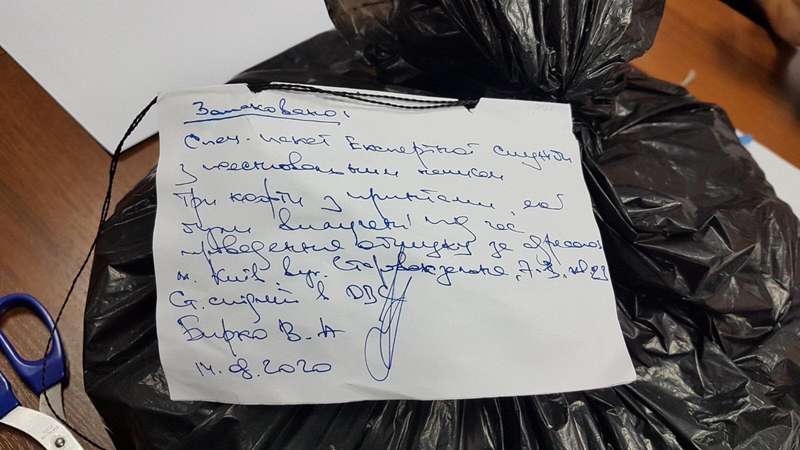 Запаковано:
Спец. пакет Експертної служби
з рестиковальним написом
Три кофти з принтами, які
були вилучені під час
проведення обшуку за адресою:
м. Київ вул.
Ст. слідчий в ДВС
Бирко В. А
14.08.2020